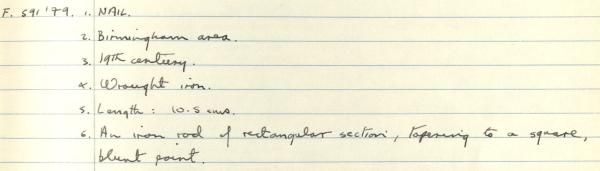 F. 591'79. 1. NAIL.
2. Birmingham area.
3. 19th century.
4. Wrought iron.
5. Length: 10.5 cms.
6. An iron rod of rectangular section, tapering to a square,
blunt point.